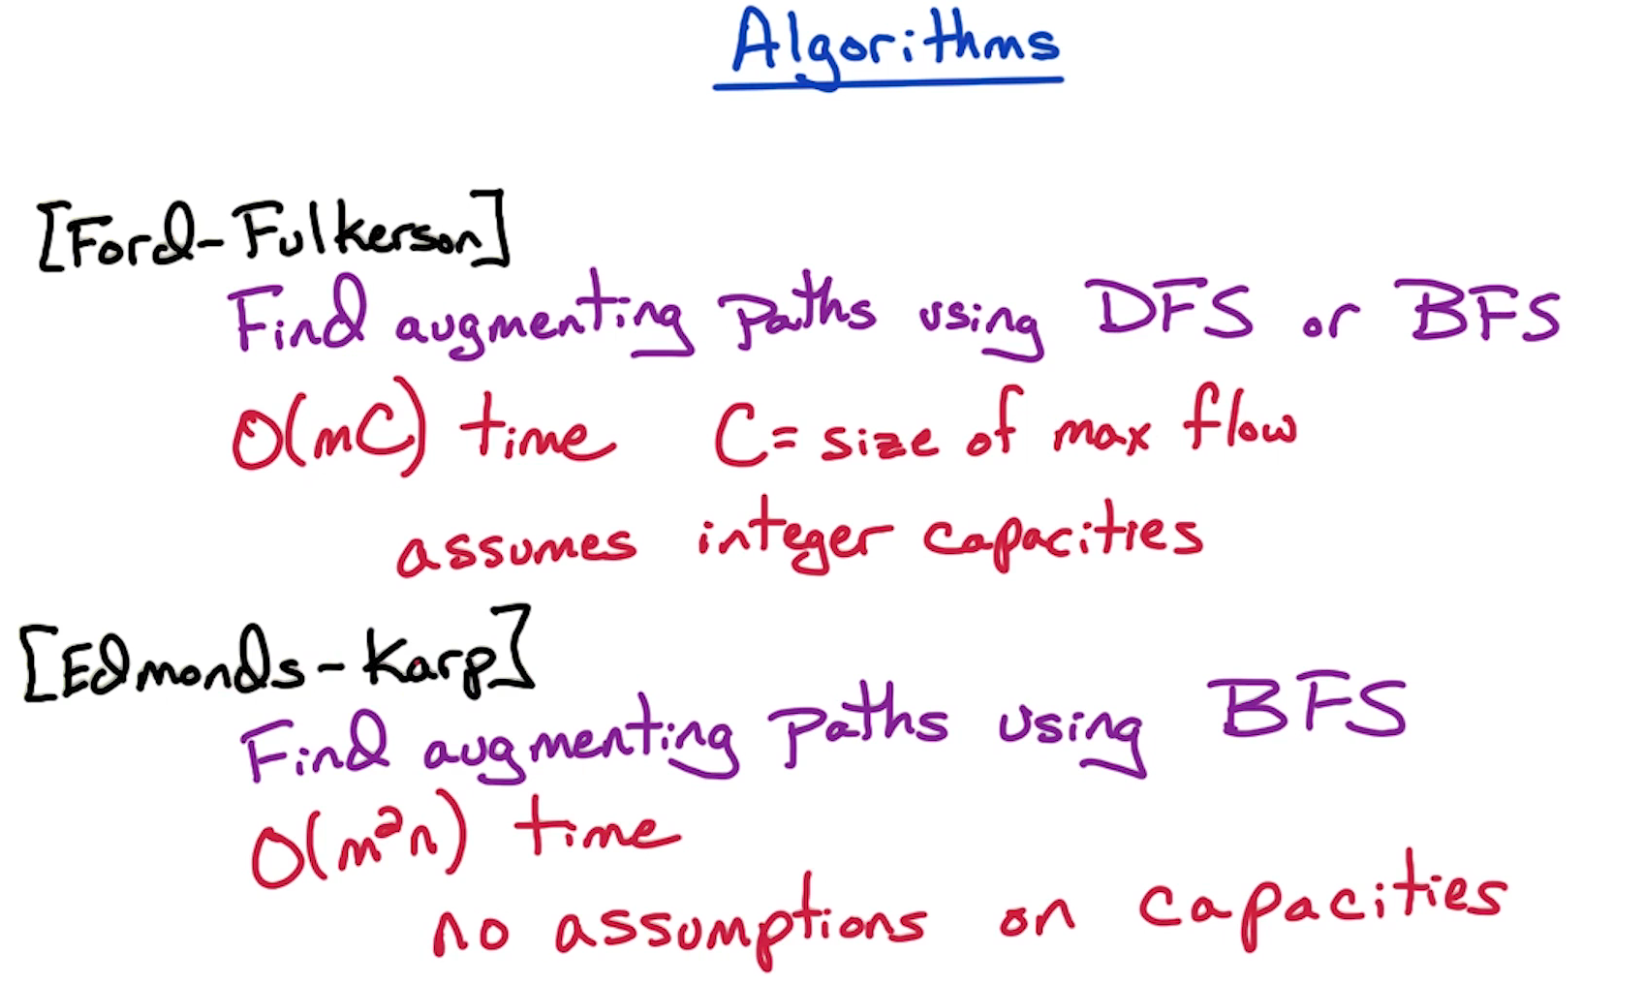 Algorithms
[Ford-Fulkerson]
Find augmenting paths using DFS or BFS
O(mC) time C = size of max flow
assumes integer capacities
[Edmonds-Karp]
Find augmenting paths using BFS
O(m²n) time
no assumptions on capacities